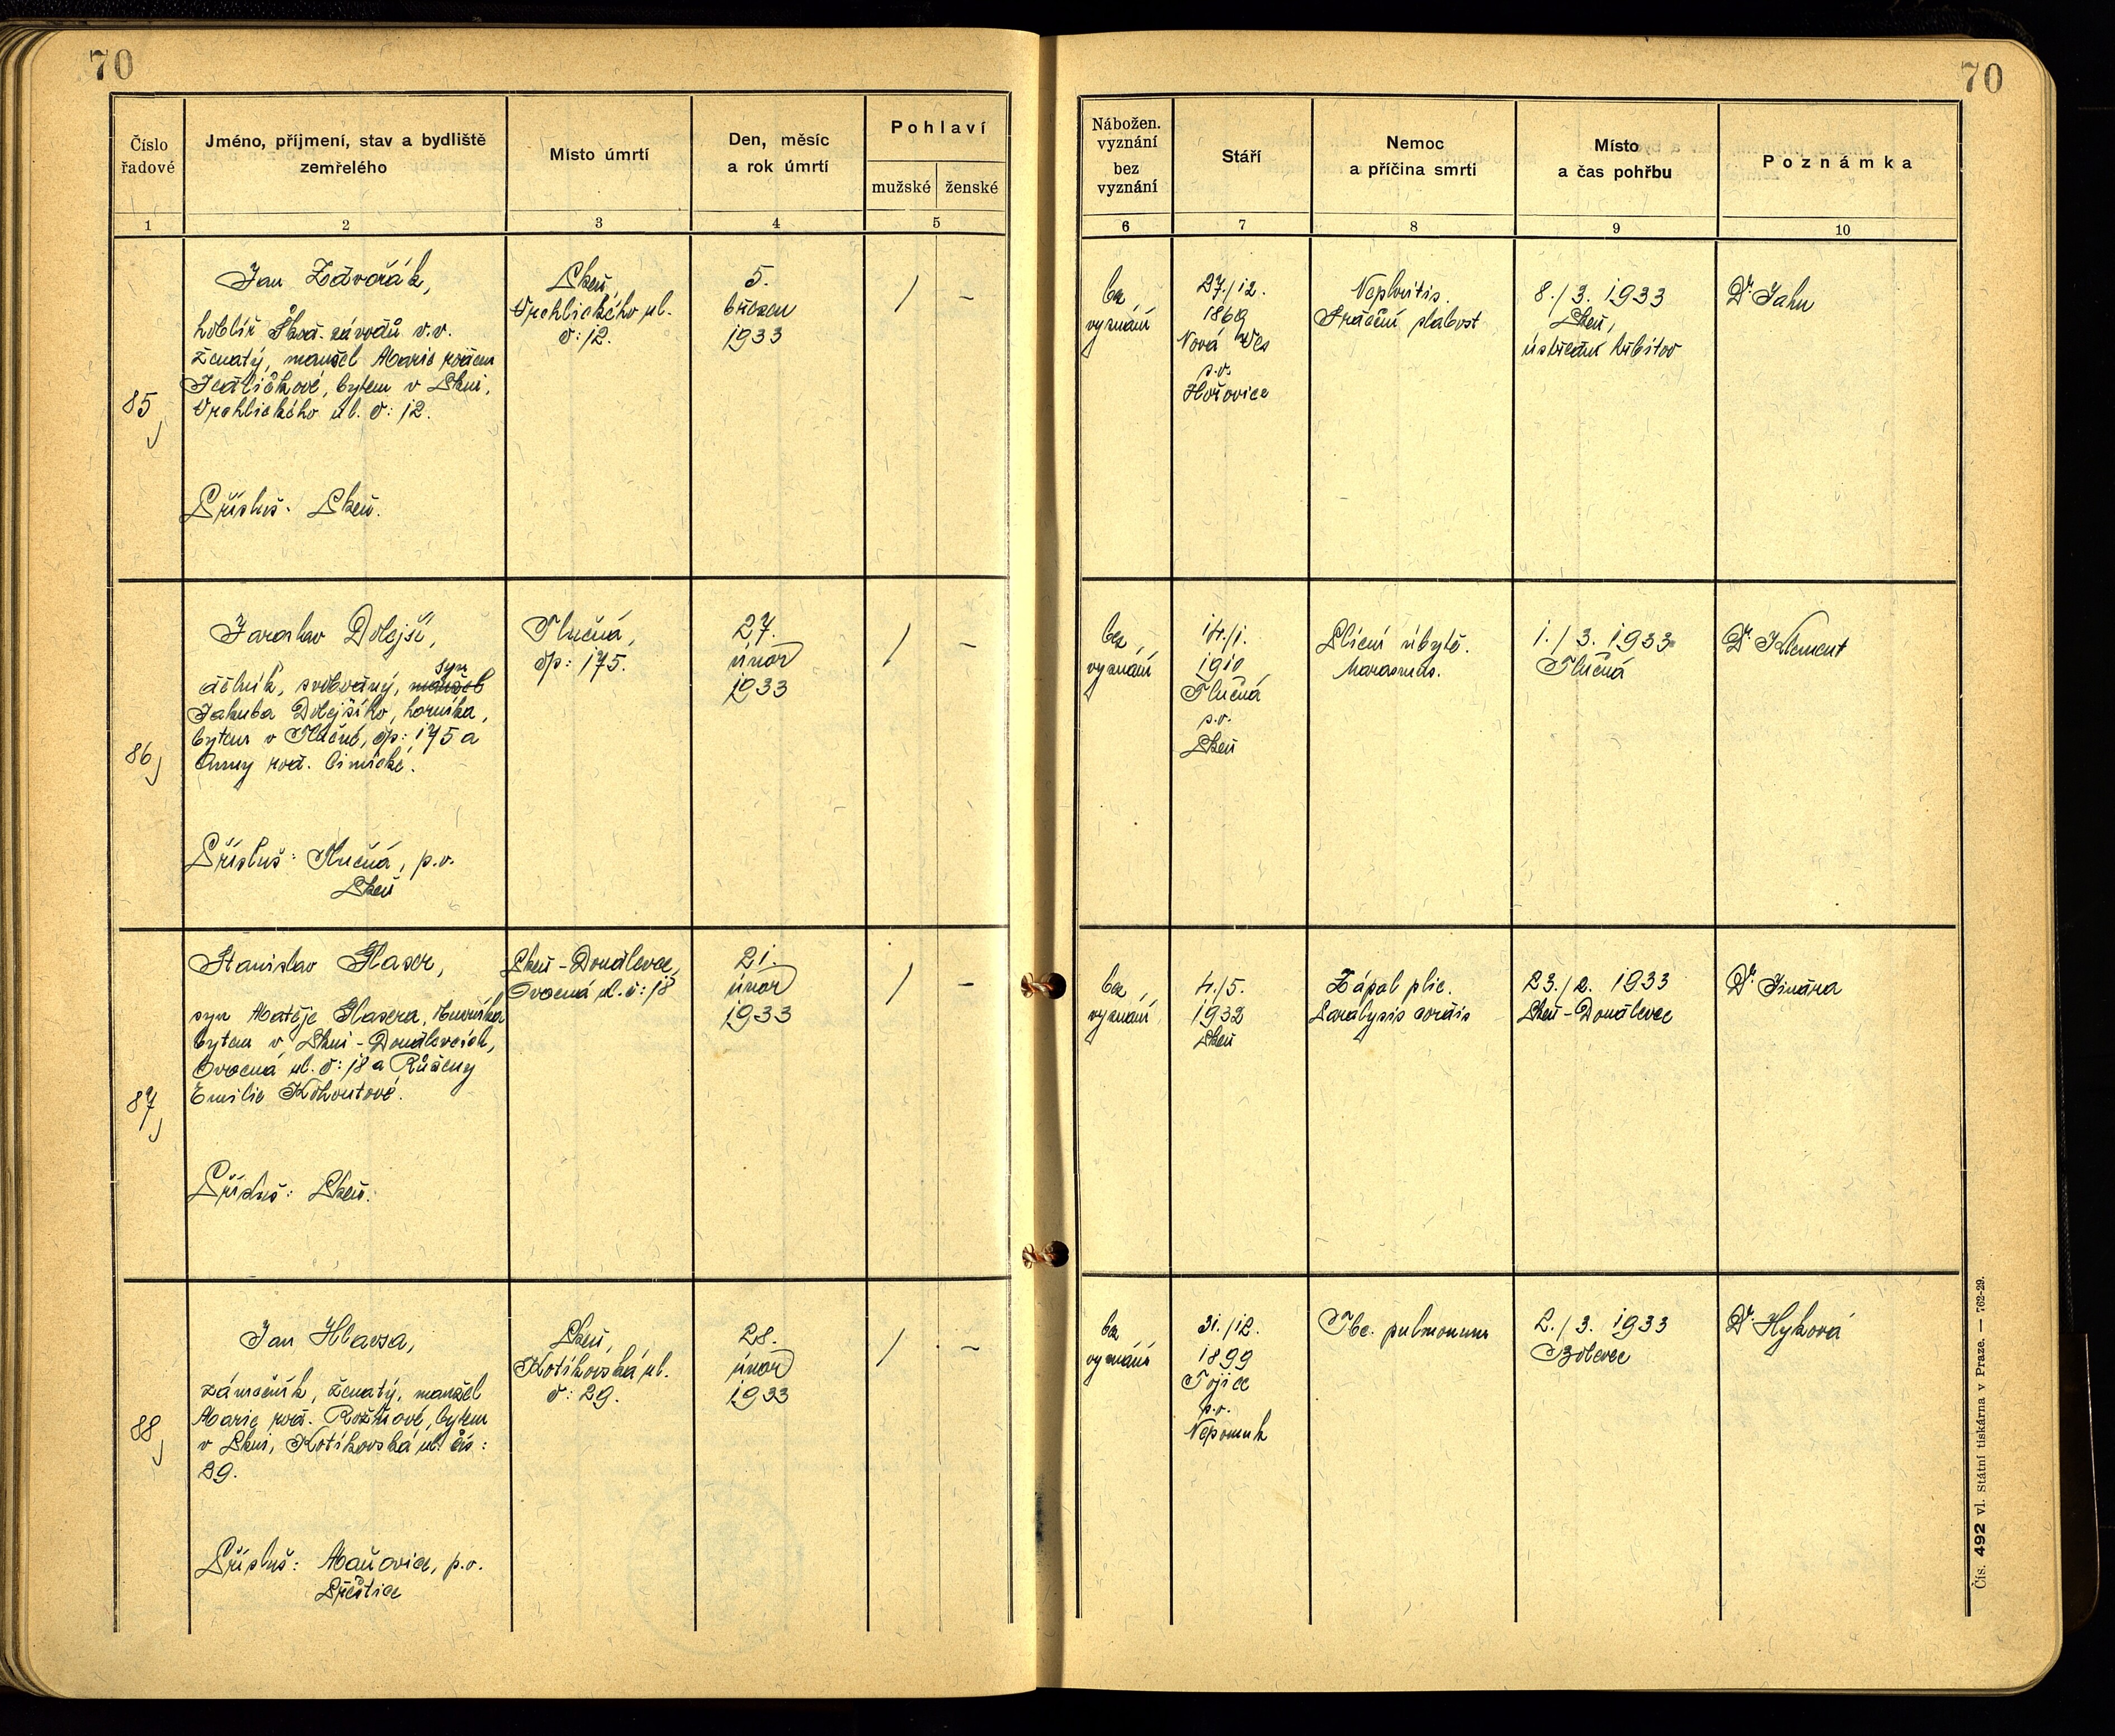 70
70
Číslo řadové
Jméno, příjmení, stav a bydliště zemřelého
Místo úmrtí
Den, měsíc a rok úmrtí
Pohlaví
mužské
ženské
Nábožen. vyznání
bez vyznání
Stáří
Nemoc a příčina smrti
Místo a čas pohřbu
Poznámka
1
2
3
4
5
6
7
8
9
10
85
Jan Zavořák,
hoblíř Škod. závodů v.v.
ženatý, manžel Marie rozen
Jedličkové, bytem v Plzni,
Vrchlického ul. č: 12.
Přísluš. Plzeň.
Plzeň,
Vrchlického ul.
č: 12.
5.
březen
1933
/
–
bez
vyznání
27./12.
1869
Nová Ves
p.o.
Hořovice
Nephritis.
Srdeční slabost
8./3. 1933
Plzeň,
ústřední hřbitov
Dr. Jahn
86
Jaroslav Dolejší,
syn
dělník, svobodný, manžel
Jakuba Dolejšího, horníka,
bytem v Tlučné, čp: 175 a
Anny rod.
Přísluš: Tlučná, p.o.
Plzeň
Tlučná,
čp: 175.
27.
únor
1933
/
–
bez
vyznání
14./1.
1910
Tlučná
p.o.
Plzeň
Plicní úbytě.
Marasmus.
1./3. 1933
Tlučná
Dr. Klement
87
Stanislav Haser,
syn Matěje Hasera,
bytem v Plzni-Doudlevcích,
Ovocná ul. č: 18 a Růženy
Emilie Kohoutové.
Přísluš: Plzeň.
Plzeň-Doudlevce,
Ovocná ul. č: 18
21.
únor
1933
/
–
bez
vyznání
4./5.
1932
Plzeň
Zápal plic.
Paralysis cordis
23./2. 1933
Plzeň-Doudlevce
Dr.
88
Jan Hlavsa,
zámečník, ženatý, manžel
Marie rod. bytem
v Plzni, Kotíkovská ul. čís:
29.
Přísluš: Maňovice, p.o.
Přeštice
Plzeň,
Kotíkovská ul.
č: 29.
28.
únor
1933
/
–
bez
vyznání
31./12.
1899
Tojice
p.o.
Nepomuk
Tbc. pulmonum
2./3. 1933
Bolevec
Dr. Hyková
Čís. 492 vl. Státní tiskárna v Praze. — 762-29.